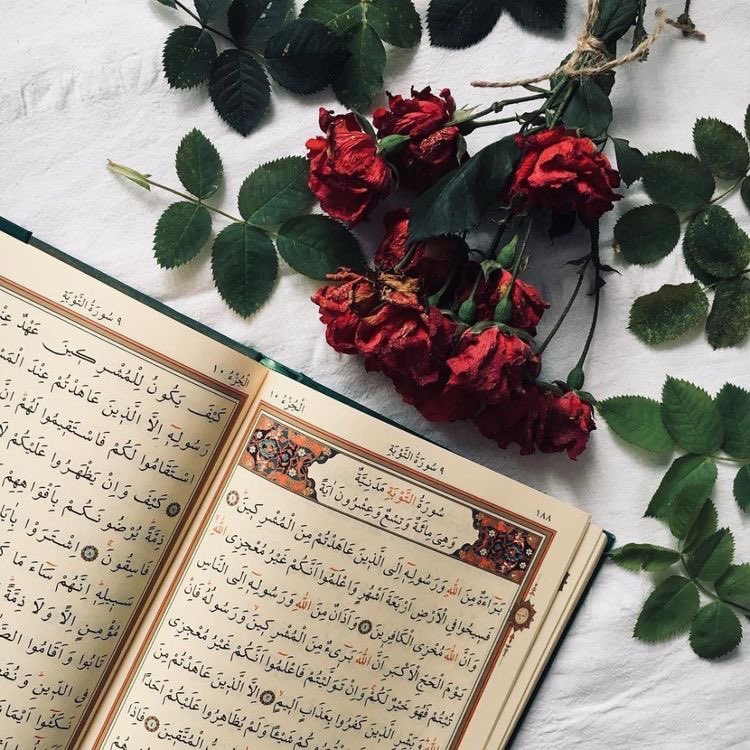 ١٨٨
٩ سُورَةُ التَّوْبَةِ
اَلْجُزْءُ ١٠
سُورَةُ التَّوْبَةِ مَدَنِيَّةٌ
وَهِىَ مِائَةٌ وَتِسْعٌ وَعِشْرُونَ اٰيَةً
بَرَٓاءَةٌ مِنَ اللّٰهِ وَرَسُولِهٖٓ اِلَى الَّذٖينَ عَاهَدْتُمْ مِنَ الْمُشْرِكٖينَ
فَسٖيحُوا فِى الْاَرْضِ اَرْبَعَةَ اَشْهُرٍ وَاعْلَمُٓوا اَنَّكُمْ غَيْرُ مُعْجِزِى اللّٰهِ
وَاَنَّ اللّٰهَ مُخْزِى الْكَافِرٖينَ وَاَذَانٌ مِنَ اللّٰهِ وَرَسُولِهٖٓ اِلَى النَّاسِ
يَوْمَ الْحَجِّ الْاَكْبَرِ اَنَّ اللّٰهَ بَرٖٓىءٌ مِنَ الْمُشْرِكٖينَ وَرَسُولُهُ فَاِنْ
تُبْتُمْ فَهُوَ خَيْرٌ لَكُمْ وَاِنْ تَوَلَّيْتُمْ فَاعْلَمُٓوا اَنَّكُمْ غَيْرُ مُعْجِزِى
اللّٰهِ وَبَشِّرِ الَّذٖينَ كَفَرُوا بِعَذَابٍ اَلٖيمٍ اِلَّا الَّذٖينَ عَاهَدْتُمْ مِنَ
شَيْئًا وَلَمْ يُظَاهِرُوا عَلَيْكُمْ اَحَدًا
الْمُتَّقٖينَ فَاِذَا
٩ سُورَةُ التَّوْبَةِ
اَلْجُزْءُ ١٠
كَيْفَ يَكُونُ لِلْمُشْرِكٖينَ عَهْدٌ عِنْدَ
رَسُولِهٖٓ اِلَّا الَّذٖينَ عَاهَدْتُمْ عِنْدَ الْمَسْ
اسْتَقَامُوا لَكُمْ فَاسْتَقٖيمُوا لَهُمْ
كَيْفَ وَاِنْ يَظْهَرُوا عَلَيْكُمْ
ذِمَّةً يُرْضُونَكُمْ بِاَفْوَاهِهِمْ
فَاسِقُونَ اِشْتَرَوْا بِاٰيَا
سَبٖيلِهٖ اِنَّهُمْ سَٓاءَ مَا كَا
مُؤْمِنٍ اِلًّا وَلَا ذِمَّةً
تَابُوا وَاَقَامُوا
فِى الدّٖينِ وَنُفَصِّ
نَكَثُٓوا اَيْمَا